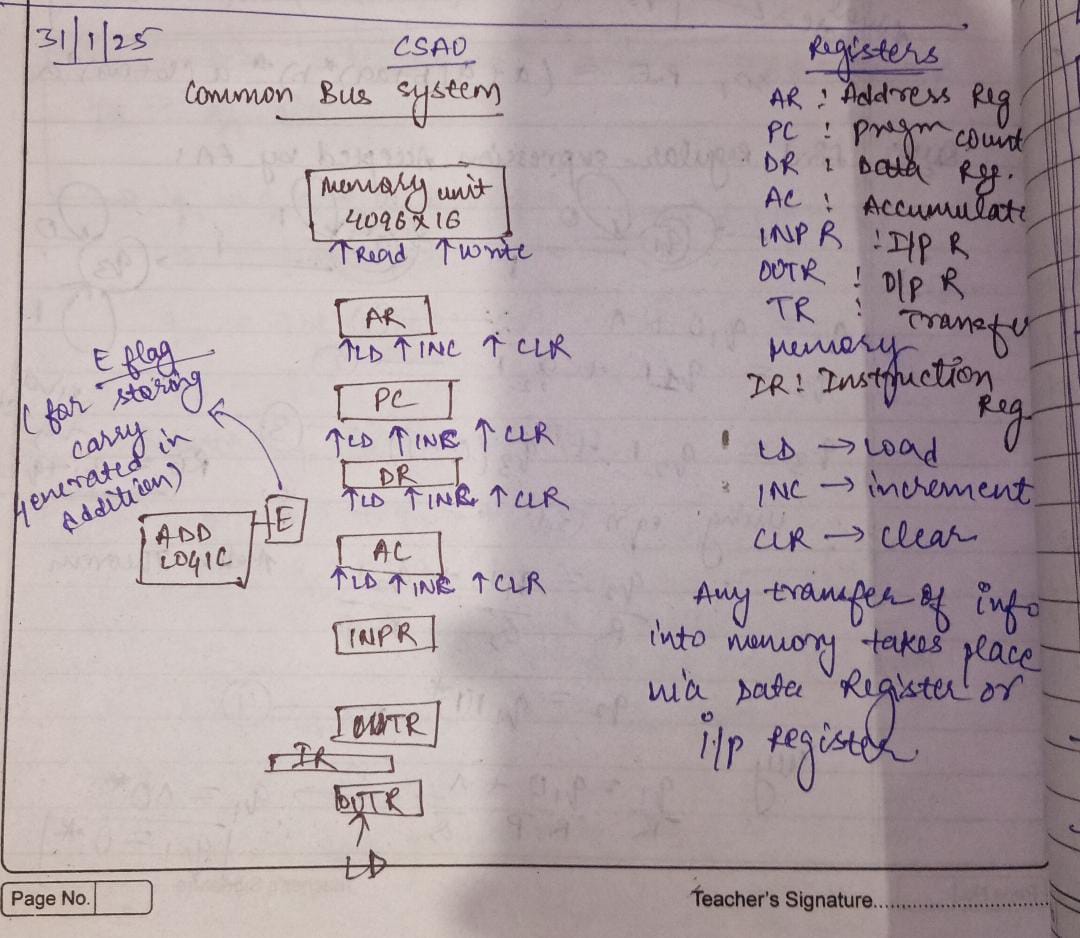 31/1/25
CSAO
Common Bus system
memory unit
4096 X 16
↑ Read ↑ write
AR
↑ LD ↑ INC ↑ CLR
PC
↑ LD ↑ INC ↑ CLR
DR
↑ LD ↑ INC ↑ CLR
E flag
(for storing
carry
generated in
Addition)
E
ADD
LOGIC
AC
↑ LD ↑ INC ↑ CLR
INPR
OUTR
IR
OUTR
LD
Registers
AR : Address Reg
PC : progm count
DR : Data Reg.
AC : Accumulate
INPR : I/p R
OUTR : O/p R
TR : Transfer
memory
IR : Instruction
Reg
LD → Load
INC → increment
CLR → clear
Any transfer of info
into memory takes place
via Data Register or
i/p register
Page No.
Teacher's Signature